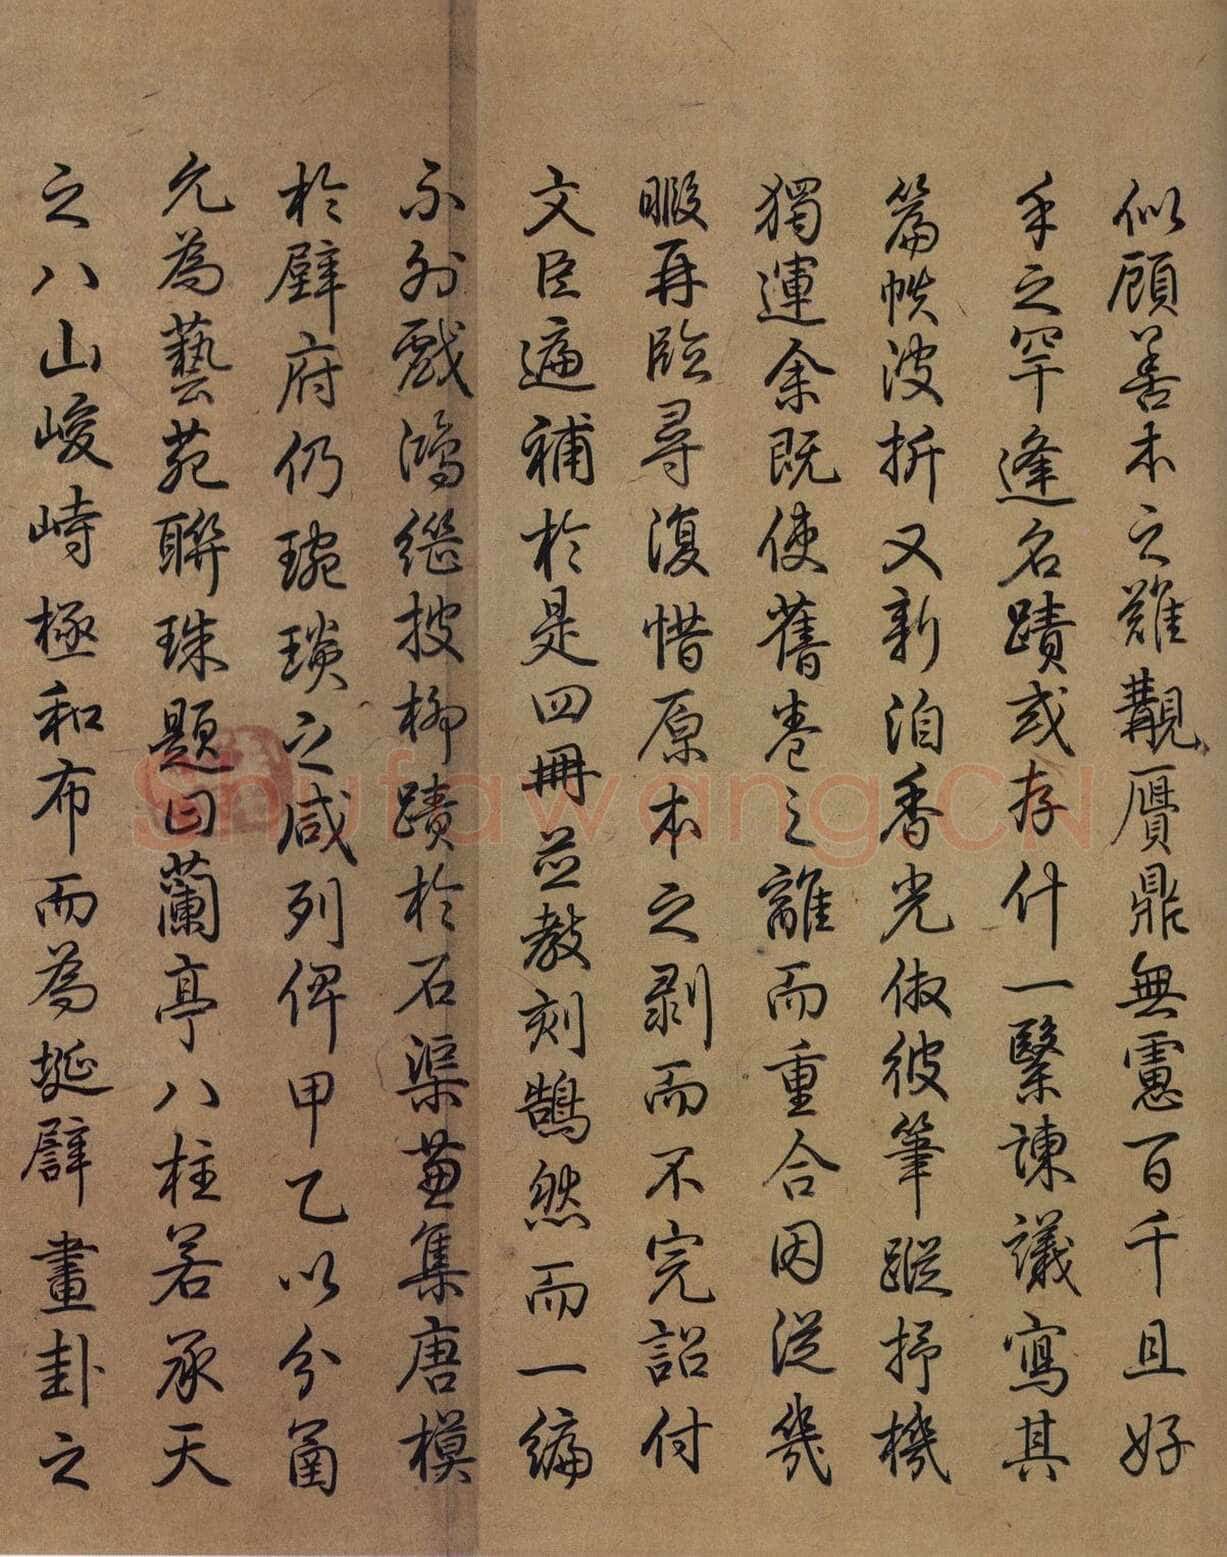 似顧善本之難覯贋鼎無慮百千且好
手之罕逢名蹟或存什一繄諫議寫其
篇帙波折又新洎香光倣彼筆蹤抒機
獨運余既使舊卷之離而重合因從幾
暇再臨尋復惜原本之剥而不完詔付
文臣遍補於是四冊並教刻鵠然而一編
不列戲鴻繼披柳蹟於石渠兼集唐模
於壁府仍琬琰之咸列俾甲乙以分函
允為藝苑聯珠題曰蘭亭八柱若承天
之八山峻峙極和布而為埏辟畫卦之
Shufawang.CN